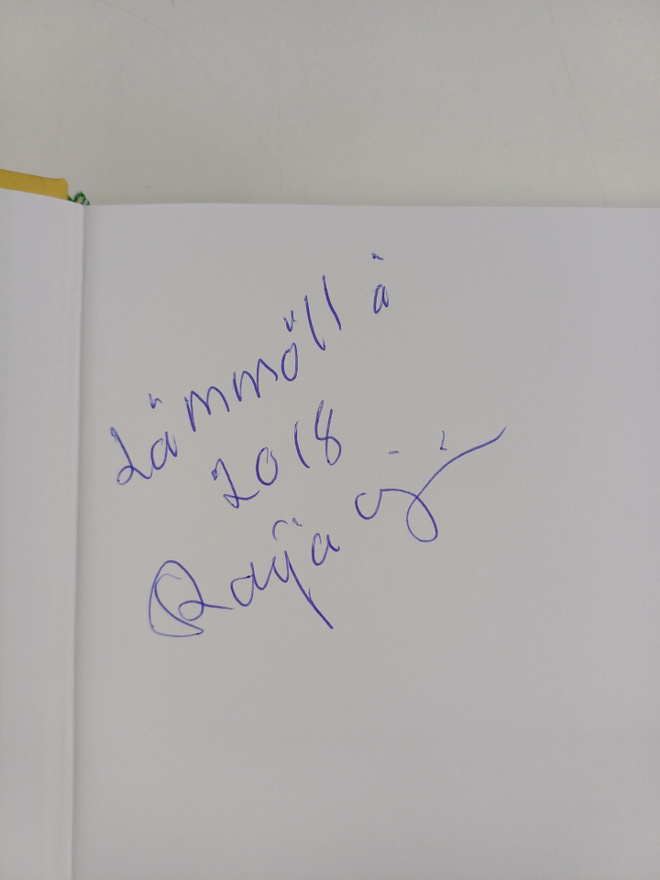 Lämmöllä
2018
Raija